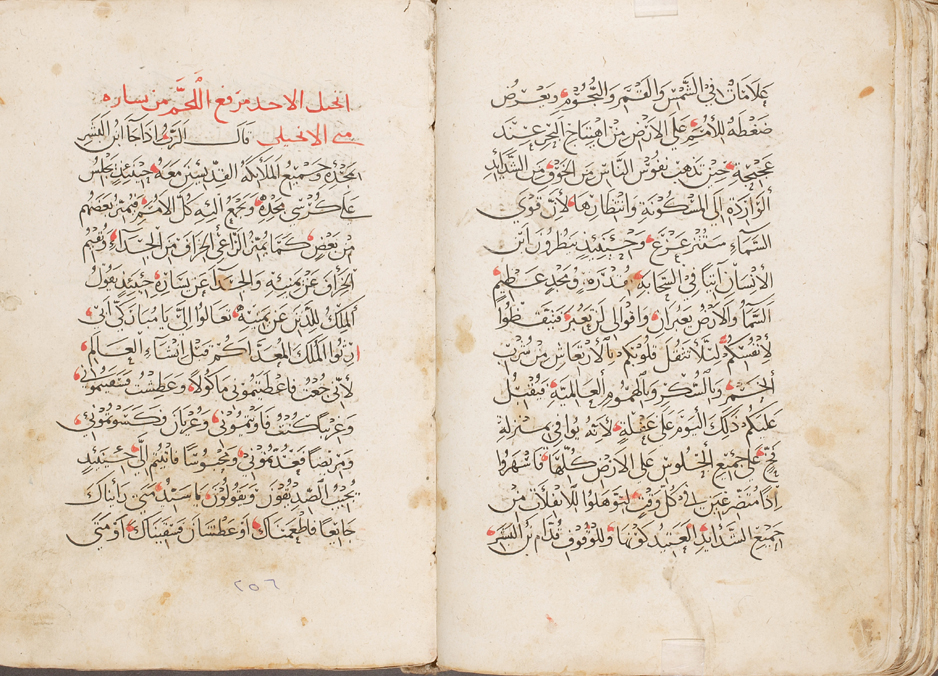 علامات في الشمس والقمر والنجوم ويعرض
ضغطه للأمم على الارض من اهتياج البحر عند
عجيجه حين تذهب نفوس الناس من الخوف ومن الشدايد
الواردة الى المسكونة وانتظارها لان قوى
السماء ستتزعزع وحينيذ ينظرون ابن
الانسان آتيا في السحابة بقدرة ومجد عظيم
السما والارض يعبران واقوالى لن تعبر فتيقظوا
لأنفسكم ليلا تثقل قلوبكم بالارتعاش من شرب
الخمر وبالسكر وبالهموم العالمية فيقبل
عليكم ذلك اليوم على غفلة لانه يوافي بمنزلة
فخ على جميع الجلوس على الارض كلها فاسهروا
اذا متضرعين في كل وقت لتوهلوا للافلات من
جميع الشدايد العتيد كونها وللوقوف قدام بن البشر
انجيل الاحد مرفع اللحم من بشاره
متى الانجيلي قال الرب اذا جا ابن البشر
بمجده وجميع الملائكة القديسين معه حينيذ يجلس
على كرسى مجده وتجمع اليه كل الامم فيميز بعضهم
من بعض كما يميز الراعي الخراف من الجداء ويقيم
الخراف عن يمينه والجدا عن يساره حينيذ يقول
الملك للذين عن يمينه تعالوا الى يا مباركي ابى
ارثوا الملك المعد لكم قبل انشاء العالم
لأني جعت فاطعمتموني ماكولا وعطشت فسقيتموني
وغريبا كنت فآويتموني وعريان وكسوتموني
ومريضا فعدتموني ومحبوسا فاتيتم الى حينيذ
يجيب الصديقون ويقولون يا سيد متى رأيناك
جايعا فاطعمناك او عطشان فسقيناك او متى
٢٥٦